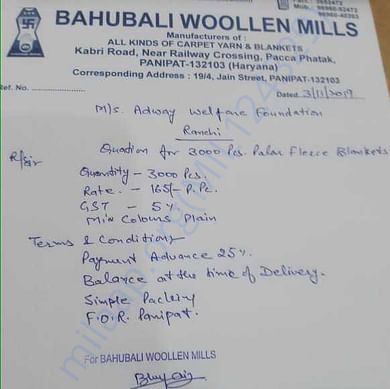 Mob. : 98960-52472
BAHUBALI WOOLLEN MILLS
Manufacturers of :
ALL KINDS OF CARPET YARN & BLANKETS
Kabri Road, Near Railway Crossing, Pacca Phatak,
PANIPAT-132103 (Haryana)
Corresponding Address : 19/4, Jain Street, PANIPAT-132103
Ref. No. Dated 3/11/2019
M/s. Adway Welfare Foundation
Ranchi
Quotion for 3000 Pcs. Polar Fleece Blankets
R/Sir
Quantity - 3000 Pcs.
Rate. - 165/- P.Pc.
GST - 5%.
Mix Colours Plain
Terms & Conditions
Payment Advance 25%.
Balance at the time of Delivery.
Simple Packing
F.O.R. Panipat.
For BAHUBALI WOOLLEN MILLS